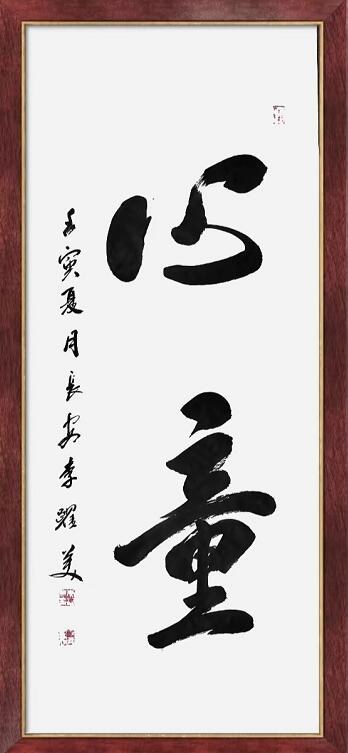 心童
壬寅夏月長安李躍美